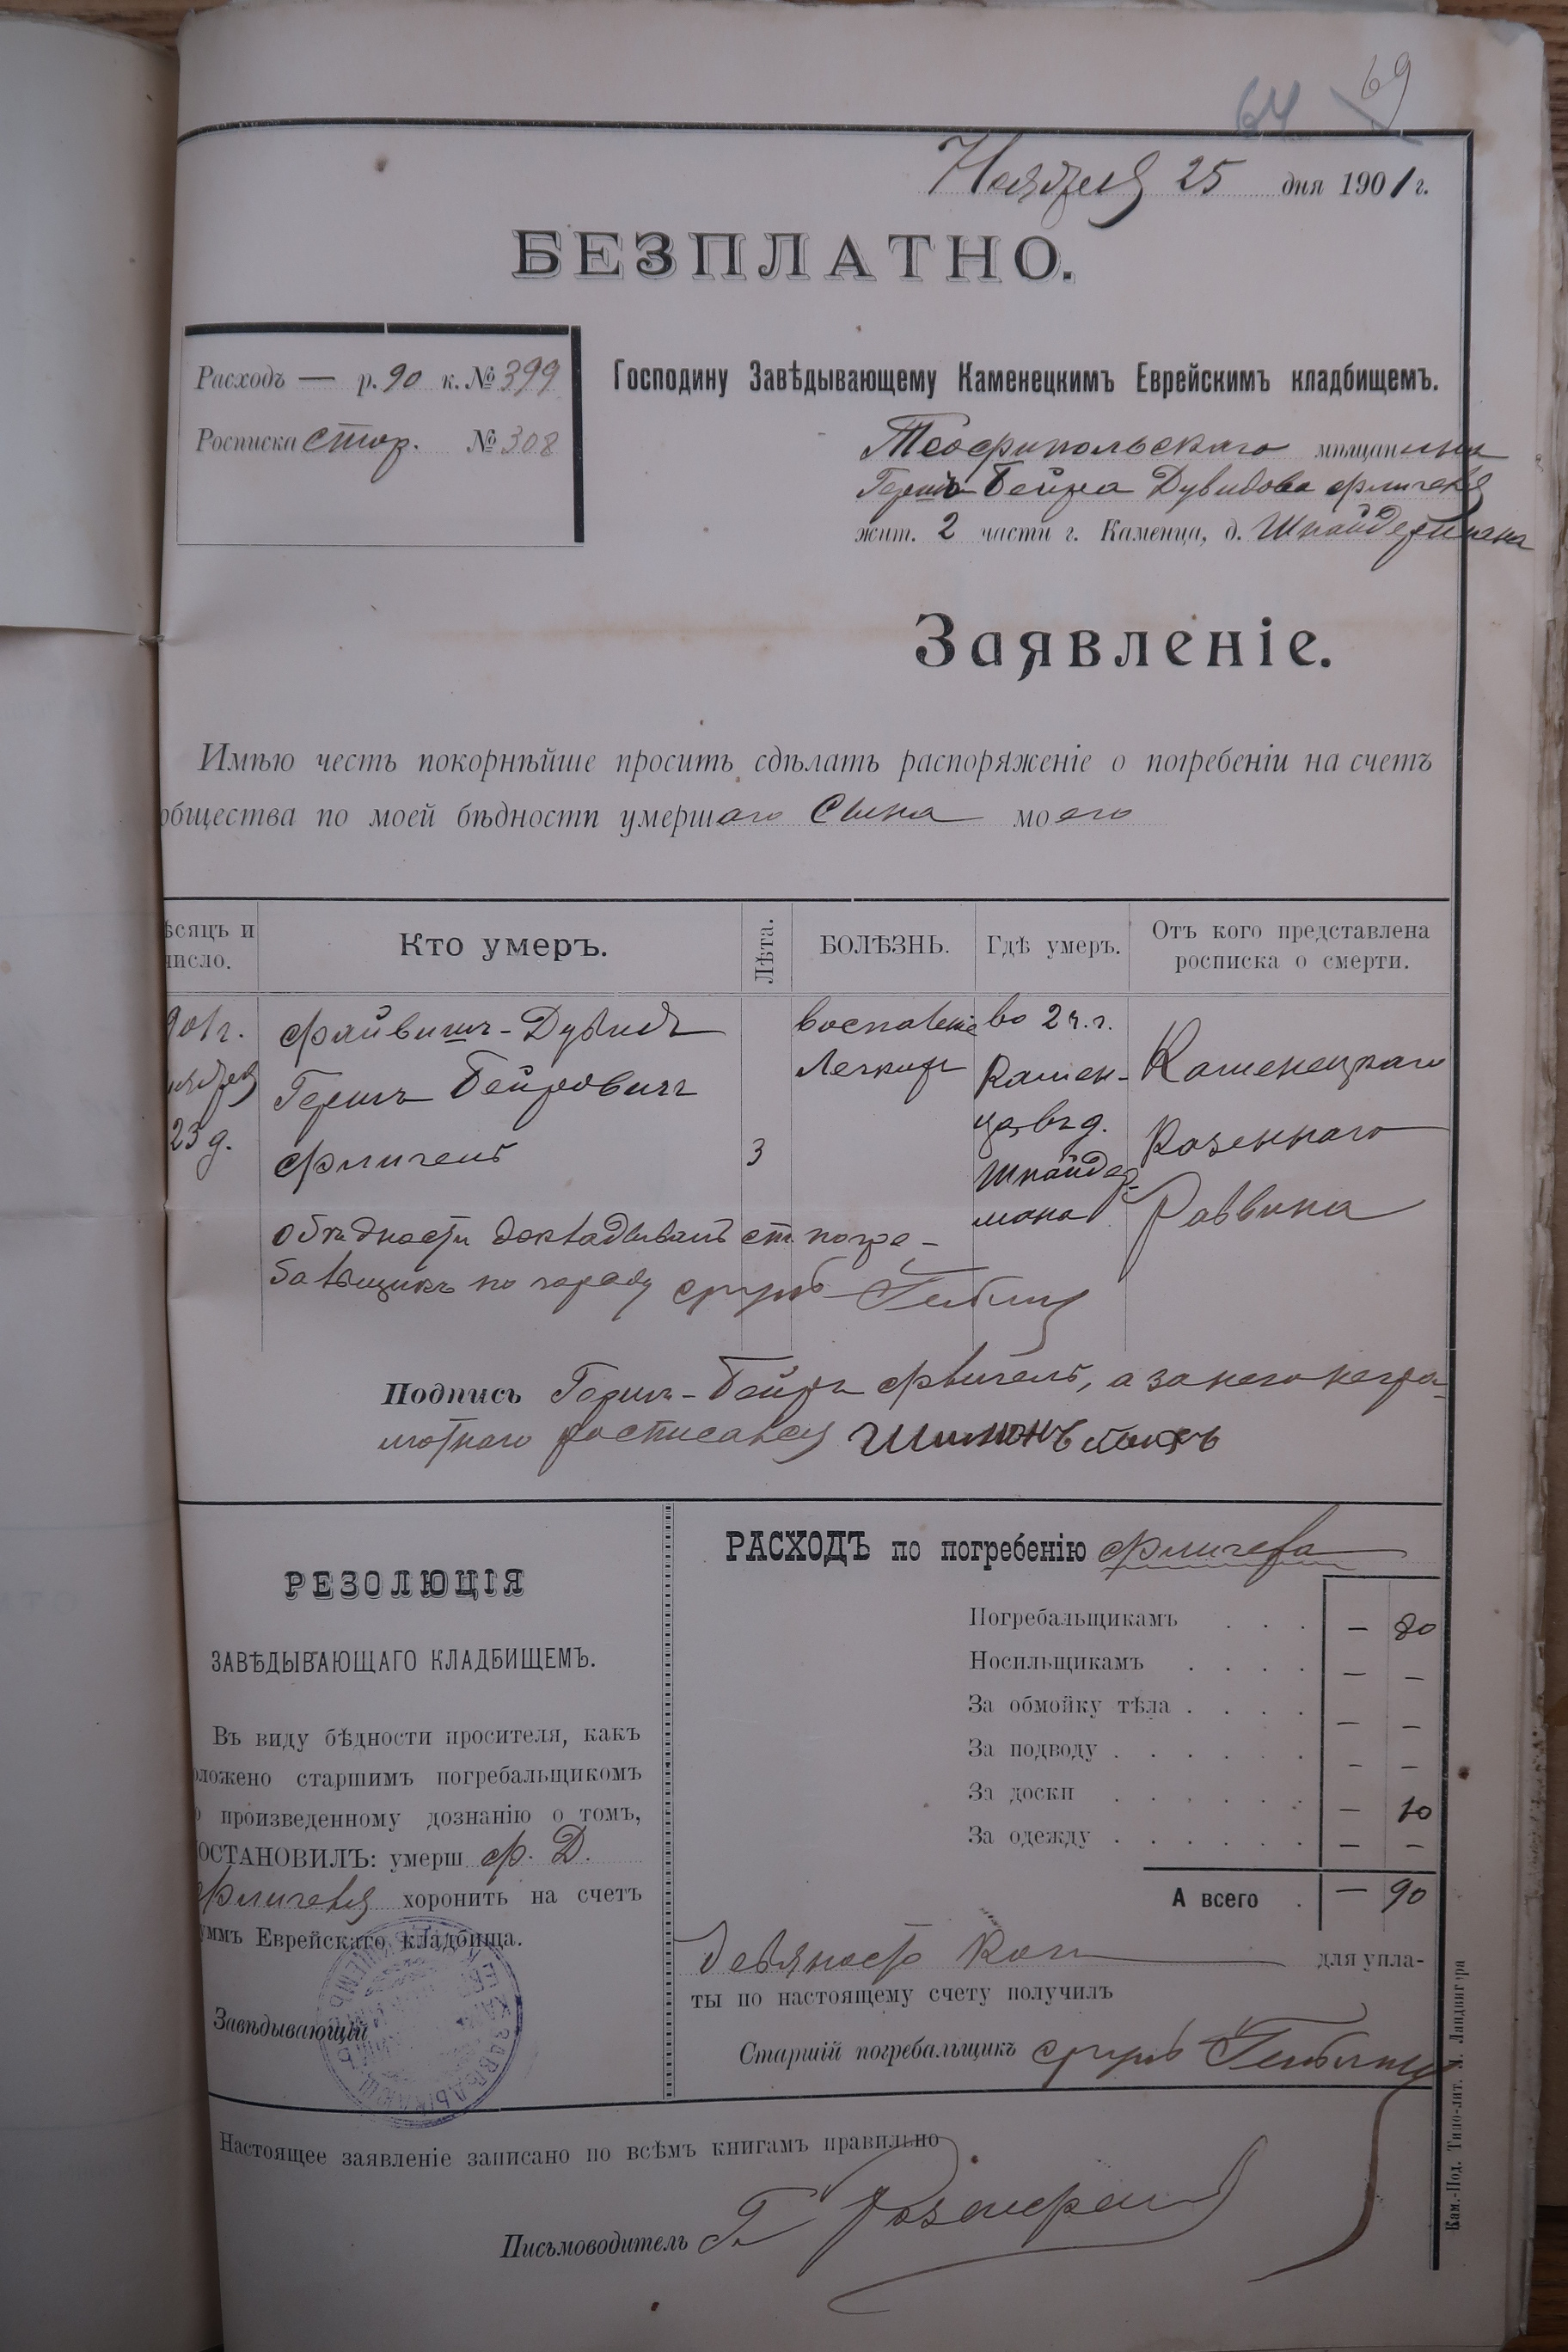 64 69
Ноября 25 дня 1901 г.
БЕЗПЛАТНО.
Расходъ — р. 90 к. № 399
Росписка стор. № 308
Господину Завѣдывающему Каменецкимъ Еврейскимъ кладбищемъ.
Теофипольскаго мѣщанина
Гершъ-Бейра Дувидова Флигеля
жит. 2 части г. Каменца, д. Шнайдермана
Заявленіе.
Имѣю честь покорнѣйше просить сдѣлать распоряженіе о погребеніи на счетъ
общества по моей бѣдности умершаго сына моего
ѣсяцъ и
число.
Кто умеръ.
Лѣта.
БОЛѢЗНЬ.
Гдѣ умеръ.
Отъ кого представлена
росписка о смерти.
901 г.
ноября
23 д.
Файвишъ-Дувидъ
Гершъ Бейровичъ
Флигель
3
воспаленіе
легкихъ
во 2 ч. г.
Камен-
ца, въ д.
Шнайдер-
мана
Каменецкаго
Казеннаго
Раввина
О бѣдности докладывалъ ст. погре-
бальщикъ по городу
Подпись Гершъ-Бейръ Флигель, а за него негра-
мотнаго росписался Шимонъ
РЕЗОЛЮЦІЯ
ЗАВѢДЫВАЮЩАГО КЛАДБИЩЕМЪ.
Въ виду бѣдности просителя, какъ
оложено старшимъ погребальщикомъ
о произведенному дознанію о томъ,
ПОСТАНОВИЛЪ: умерш Ф. Д.
Флигеля хоронить на счетъ
уммъ Еврейскаго кладбища.
Завѣдывающій
РАСХОДЪ по погребенію Флигеля
Погребальщикамъ . . . — 80
Носильщикамъ . . . . — —
За обмойку тѣла . . . . — —
За подводу . . . . . . — —
За доски . . . . . . — 10
За одежду . . . . . . — —
А всего . — 90
девяносто коп. для упла-
ты по настоящему счету получилъ
Старшій погребальщикъ
Настоящее заявленіе записано по всѣмъ книгамъ правильно
Письмоводитель Г.
Кам.-Под. Типо-лит. Л. Ландвигера